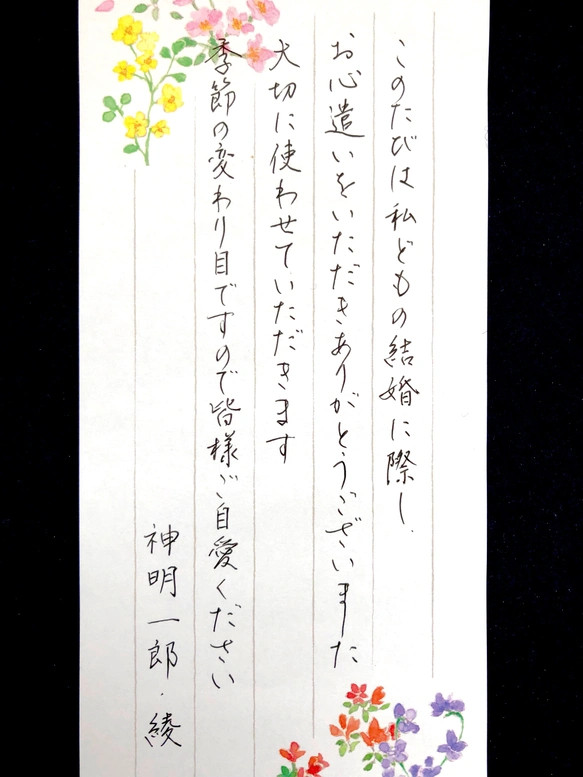 このたびは私どもの結婚に際し、
お心遣いをいただきありがとうございました
大切に使わせていただきます
季節の変わり目ですので皆様ご自愛ください
神明一郎・綾